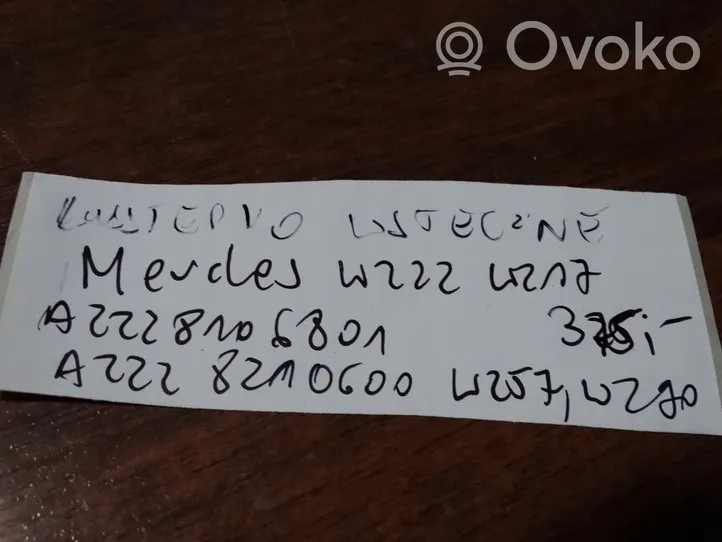 Ovoko
WSTECZNE
Mercdes W222 W217
A2228106801 375,-
A222 8210600 W257, W290